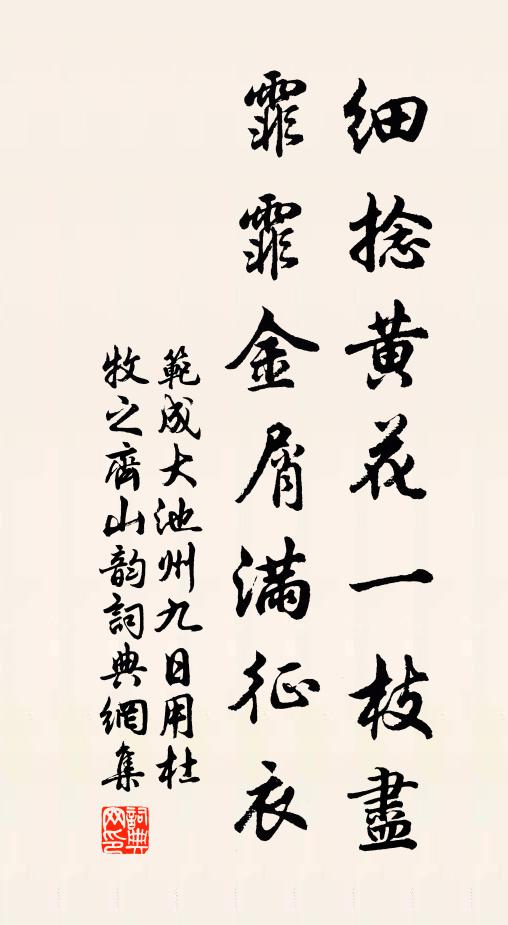 細捻黃花一枝盡
霏霏金屑滿征衣
範成大池州九日用杜
牧之齊山韵詞典網集
詞典網印